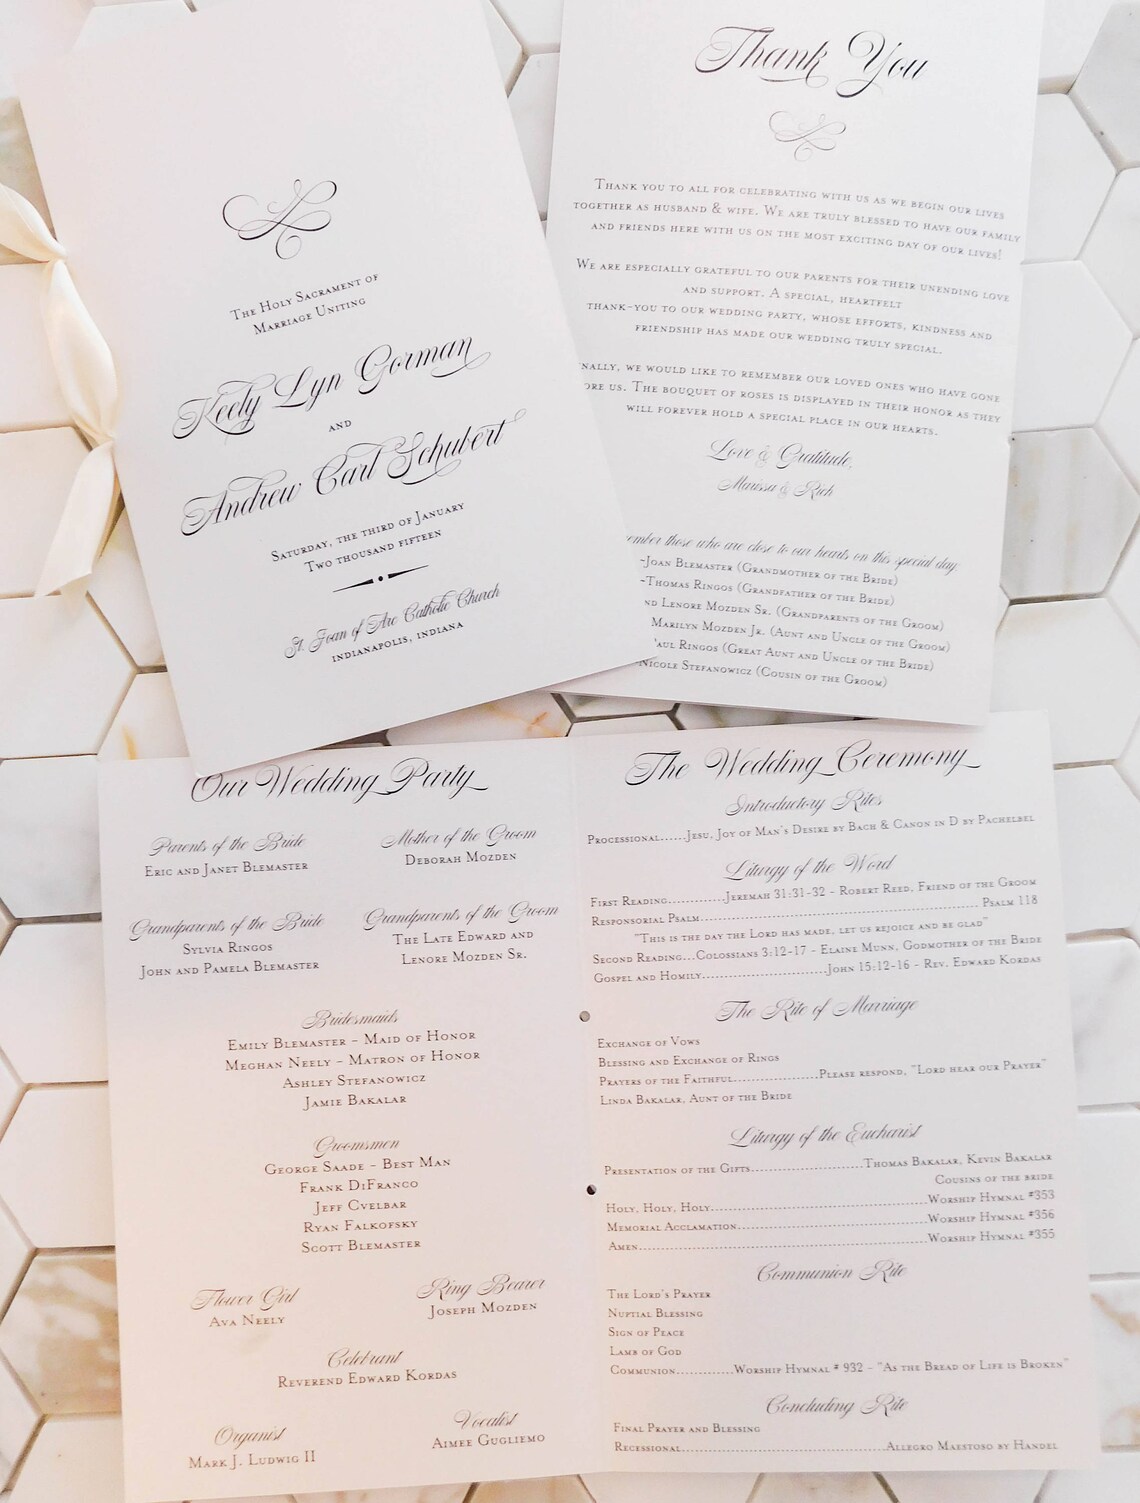 The Holy Sacrament of
Marriage Uniting
Keely Lyn Gorman
and
Andrew Carl Schubert
Saturday, the third of January
Two thousand fifteen
St. Joan of Arc Catholic Church
Indianapolis, Indiana
Thank You
Thank you to all for celebrating with us as we begin our lives
together as husband & wife. We are truly blessed to have our family
and friends here with us on the most exciting day of our lives!
We are especially grateful to our parents for their unending love
and support. A special, heartfelt
thank-you to our wedding party, whose efforts, kindness and
friendship has made our wedding truly special.
nally, we would like to remember our loved ones who have gone
ore us. The bouquet of roses is displayed in their honor as they
will forever hold a special place in our hearts.
Love & Gratitude,
Marissa & Rich
ember those who are close to our hearts on this special day
-Joan Blemaster (Grandmother of the Bride)
-Thomas Ringos (Grandfather of the Bride)
nd Lenore Mozden Sr. (Grandparents of the Groom)
Marilyn Mozden Jr. (Aunt and Uncle of the Groom)
aul Ringos (Great Aunt and Uncle of the Bride)
Nicole Stefanowicz (Cousin of the Groom)
Our Wedding Party
Parents of the Bride
Eric and Janet Blemaster
Mother of the Groom
Deborah Mozden
Grandparents of the Bride
Sylvia Ringos
John and Pamela Blemaster
Grandparents of the Groom
The Late Edward and
Lenore Mozden Sr.
Bridesmaids
Emily Blemaster - Maid of Honor
Meghan Neely - Matron of Honor
Ashley Stefanowicz
Jamie Bakalar
Groomsmen
George Saade - Best Man
Frank DiFranco
Jeff Cvelbar
Ryan Falkofsky
Scott Blemaster
Flower Girl
Ava Neely
Ring Bearer
Joseph Mozden
Celebrant
Reverend Edward Kordas
Organist
Mark J. Ludwig II
Vocalist
Aimee Gugliemo
The Wedding Ceremony
Introductory Rites
Processional......Jesu, Joy of Man's Desire by Bach & Canon in D by Pachelbel
Liturgy of the Word
First Reading.............Jeremah 31:31-32 - Robert Reed, Friend of the Groom
Responsorial Psalm............................................................ Psalm 118
"This is the day the Lord has made, let us rejoice and be glad"
Second Reading...Colossians 3:12-17 - Elaine Munn, Godmother of the Bride
Gospel and Homily...........................John 15:12-16 - Rev. Edward Kordas
The Rite of Marriage
Exchange of Vows
Blessing and Exchange of Rings
Prayers of the Faithful...................Please respond, "Lord hear our Prayer"
Linda Bakalar, Aunt of the Bride
Liturgy of the Eucharist
Presentation of the Gifts.........................Thomas Bakalar, Kevin Bakalar
Cousins of the bride
Holy, Holy, Holy................................................Worship Hymnal #353
Memorial Acclamation..........................................Worship Hymnal #356
Amen................................................................Worship Hymnal #355
Communion Rite
The Lord's Prayer
Nuptial Blessing
Sign of Peace
Lamb of God
Communion.............Worship Hymnal # 932 - "As the Bread of Life is Broken"
Concluding Rite
Final Prayer and Blessing
Recessional.............................................Allegro Maestoso by Handel